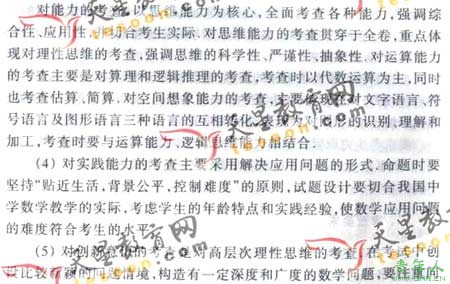 对能力的考查,以思维能力为核心,全面考查各种能力,强调综
合性、应用性,切合考生实际.对思维能力的考查贯穿于全卷,重点体
现对理性思维的考查,强调思维的科学性、严谨性、抽象性.对运算能力
的考查主要是对算理和逻辑推理的考查,考查时以代数运算为主,同时
也考查估算、简算.对空间想象能力的考查,主要体现在对文字语言、符
号语言及图形语言三种语言的互相转化,表现为对图形的识别、理解和
加工,考查时要与运算能力、逻辑思维能力相结合.
(4) 对实践能力的考查主要采用解决应用问题的形式.命题时要
坚持“贴近生活,背景公平,控制难度”的原则,试题设计要切合我国中
学数学教学的实际,考虑学生的年龄特点和实践经验,使数学应用问题
的难度符合考生的水平.
(5) 对创新意识的考查是对高层次理性思维的考查.在考试中创
设比较新颖的问题情境,构造有一定深度和广度的数学问题,要注重问
天星教育网
tesoon.com
青年人